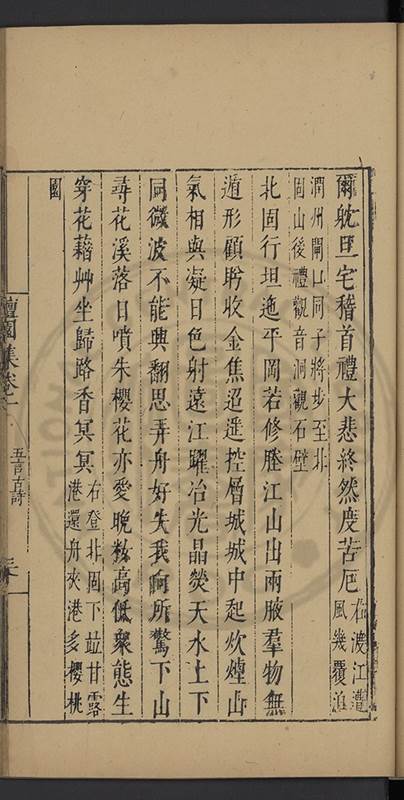 爾躭且宅稽首禮大悲終然度苦厄右渡江遭
風幾覆泊
潤州閘口同子將步至北
固山後禮觀音洞觀石壁
北固行坦迤平岡若修塍江山出兩腋羣物無
遁形顧盻收金焦迢遥控層城城中起炊煙山
氣相與凝日色射遠江躍冶光晶熒天水上下
同微波不能興翻思弄舟好失我向所驚下山
尋花溪落日噴朱櫻花亦愛晚粧高低衆態生
穿花藉艸坐歸路香冥冥右登北固下竝甘露
港還舟夾港多櫻桃
園
檀園集卷一
五言古詩